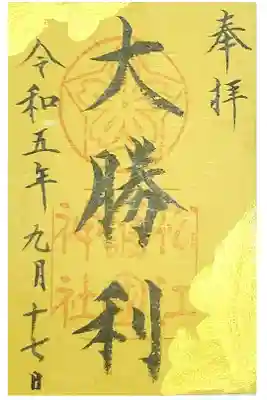 奉拝
大勝利
令和五年九月十七日
松江
神社